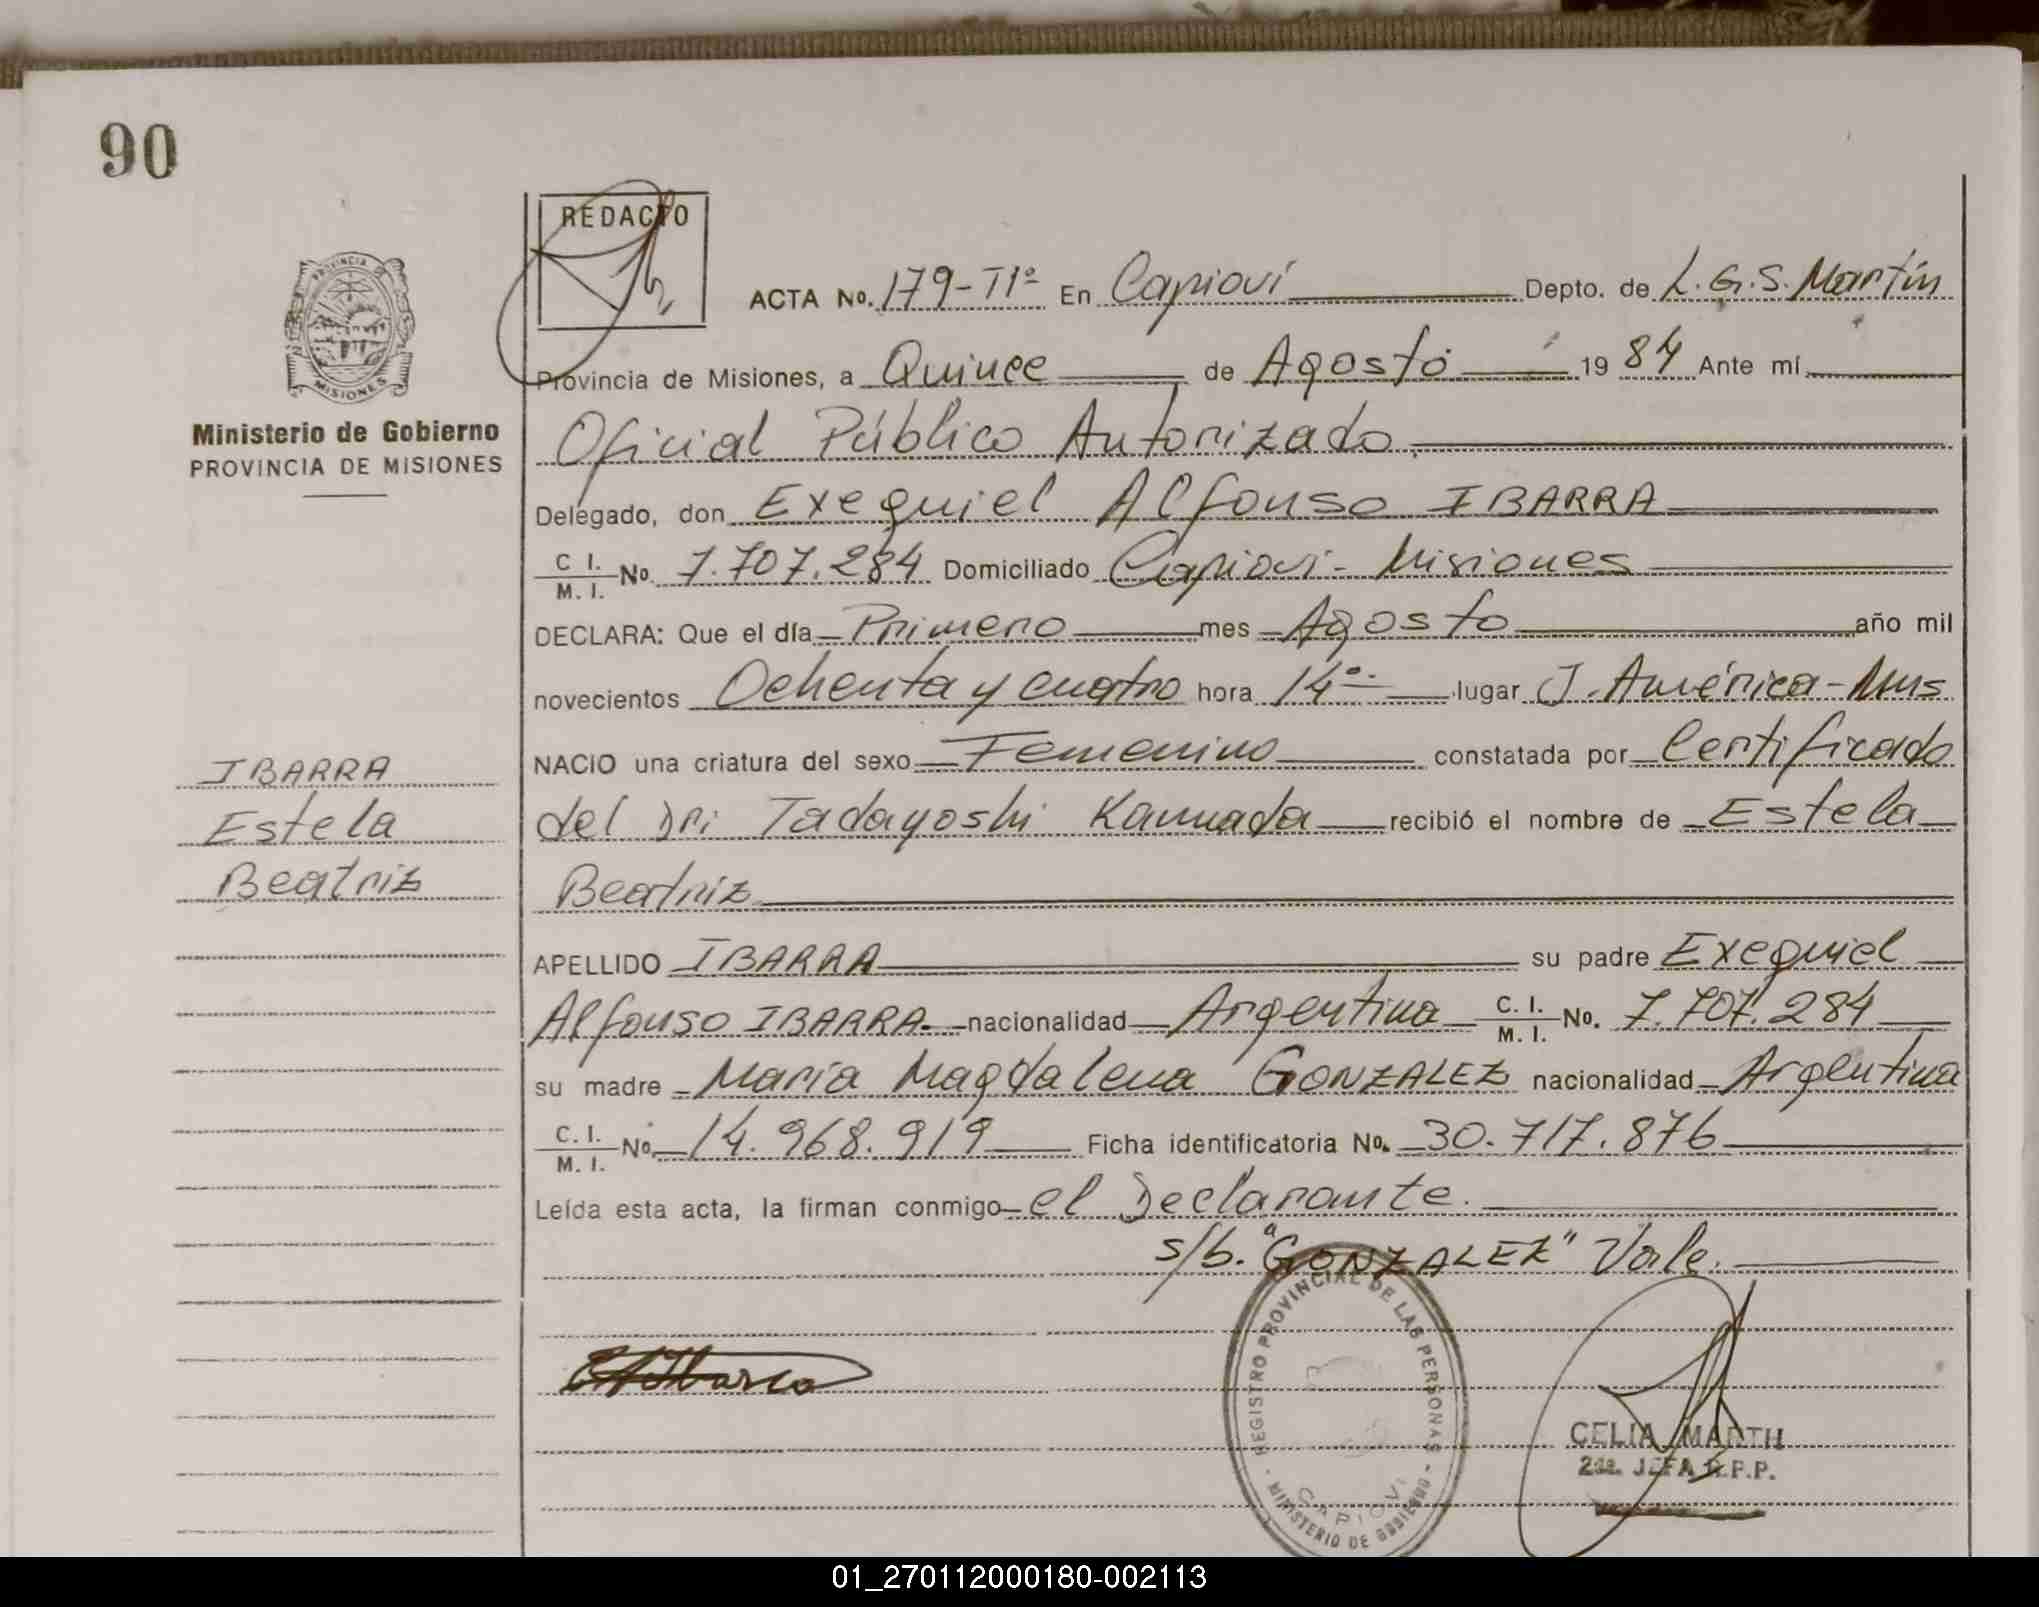 90
REDACTO
PROVINCIA DE
MISIONES
Ministerio de Gobierno
PROVINCIA DE MISIONES
IBARRA
Estela
Beatriz
ACTA No. 179-TIº En Capioví Depto. de L.G.S. Martín
Provincia de Misiones, a Quince de Agosto 1984 Ante mí
Oficial Público Autorizado
Delegado, don Exequiel Alfonso IBARRA
C. I. M. I. No. 7.707.284 Domiciliado Capioví - Misiones
DECLARA: Que el día Primero mes Agosto año mil
novecientos Ochenta y cuatro hora 14º lugar J. América - Mns
NACIO una criatura del sexo Femenino constatada por Certificado
del Dr: Tadayoshi Kamada recibió el nombre de Estela
Beatriz
APELLIDO IBARRA su padre Exequiel
Alfonso IBARRA nacionalidad Argentina C. I. M. I. No. 7.707.284
su madre María Magdalena GONZALEZ nacionalidad Argentina
C. I. M. I. No. 14.968.919 Ficha identificatoria No. 30.717.876
Leída esta acta, la firman conmigo el Declarante.
s/b. "GONZALEZ" Vale.
REGISTRO PROVINCIAL DE LAS PERSONAS
CAPIOVI
MINISTERIO DE GOBIERNO
CELIA MARTH
2da. JEFA R.P.P.
01_270112000180-002113